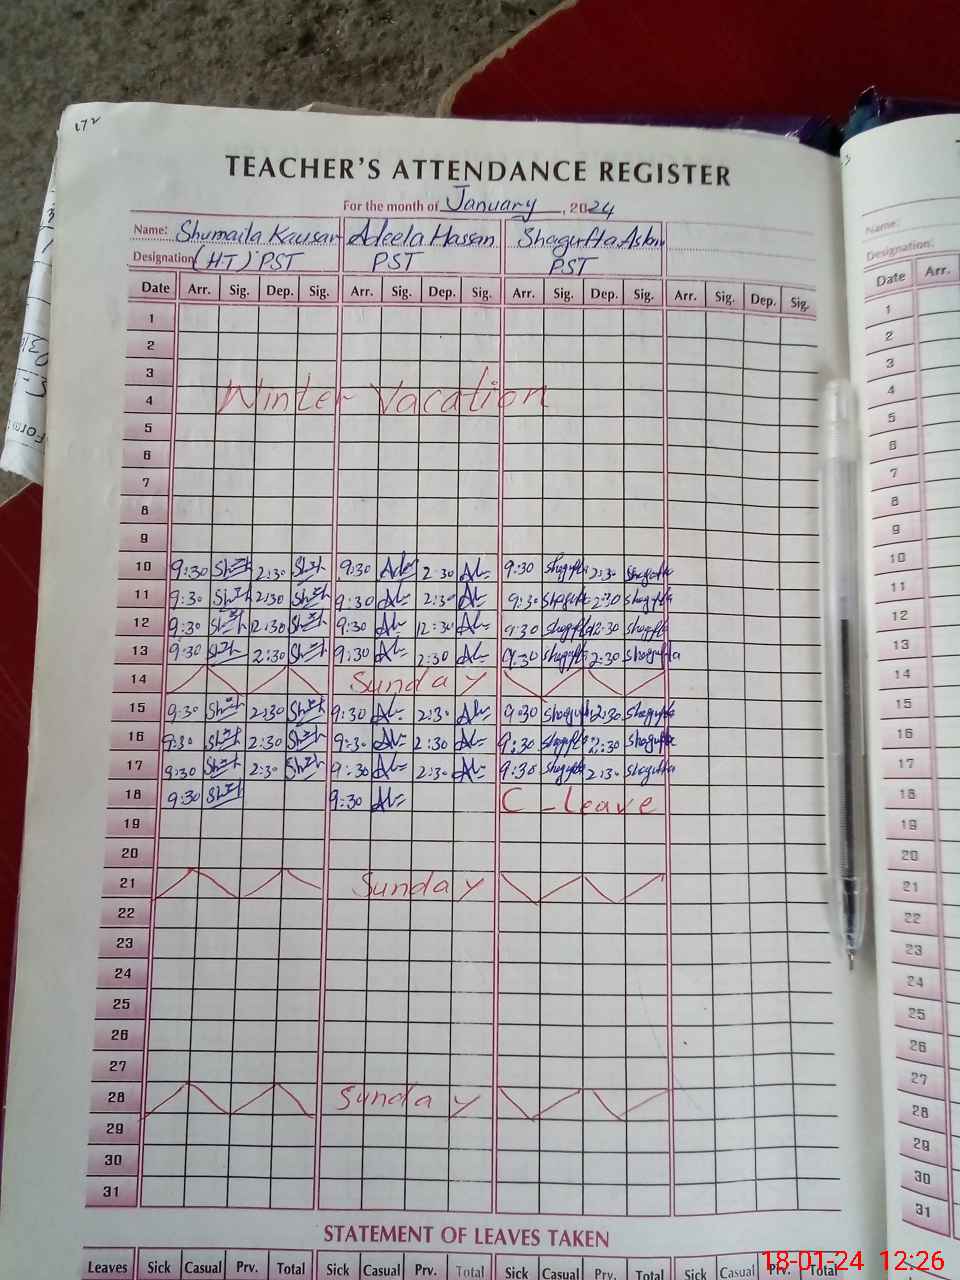 172
TEACHER'S ATTENDANCE REGISTER
For the month of January, 2024
Name: Shumaila Kausar Adeela Hassan Shagufta
Designation (HT) PST PST PST
Date Arr. Sig. Dep. Sig. Arr. Sig. Dep. Sig. Arr. Sig. Dep. Sig. Arr. Sig. Dep. Sig.
1
2
3
4 Winter Vacation
5
6
7
8
9
10 9:30 2:30 9:30 2:30 9:30 Shagufta 2:30 Shagufta
11 9:30 2:30 9:30 2:30 9:30 Shagufta 2:30 Shagufta
12 9:30 12:30 9:30 12:30 9:30 Shagufta 12:30 Shagufta
13 9:30 2:30 9:30 2:30 9:30 Shagufta 2:30 Shagufta
14 Sunday
15 9:30 2:30 9:30 2:30 9:30 Shagufta 2:30 Shagufta
16 9:30 2:30 9:30 2:30 9:30 Shagufta 2:30 Shagufta
17 9:30 2:30 9:30 2:30 9:30 Shagufta 2:30 Shagufta
18 9:30 9:30 C-Leave
19
20
21 Sunday
22
23
24
25
26
27
28 Sunday
29
30
31
STATEMENT OF LEAVES TAKEN
Leaves Sick Casual Prv. Total Sick Casual Prv. Total Sick Casual Prv. Total Sick Casual Prv. Total
Name:
Designation:
Date Arr.
1
2
3
4
5
6
7
8
9
10
11
12
13
14
15
16
17
18
19
20
21
22
23
24
25
26
27
28
29
30
31
18-01-24 12:26